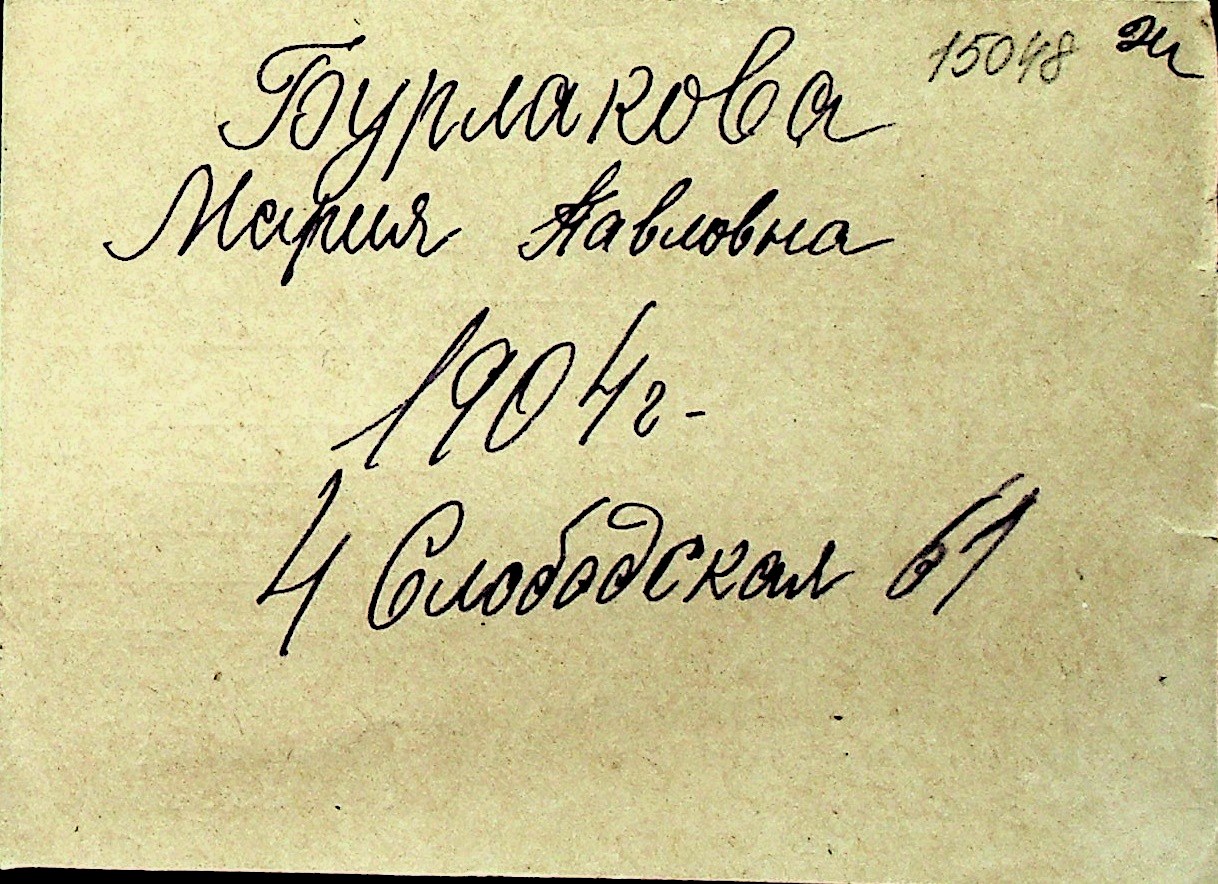 15048
Бурлакова
Мария Павловна
1904г-
4 Слободская 61